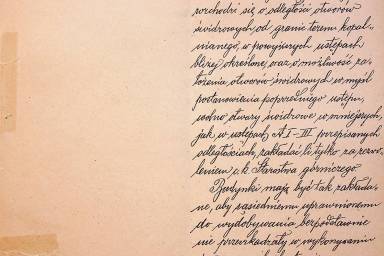 rozchodzi się o odległości otworów
świdrowych, od granic terenu kopal-
nianego, w powyższych ustępach
bliżej określone, oraz o możliwość za-
łożenia otworów świdrowych w myśl
postanowienia poprzedniego ustępu,
wolno otwory świdrowe w mniejszych,
jak w ustępach A I-III przepisanych
odległościach, zakładać li tylko za zezwo-
leniem c. k. Starostwa górniczego
Budynki mają być tak zakłada-
ne, aby sąsiedniemu uprawnionemu
do wydobywania bezpodstawnie
nie przeszkadzały w wykonywaniu